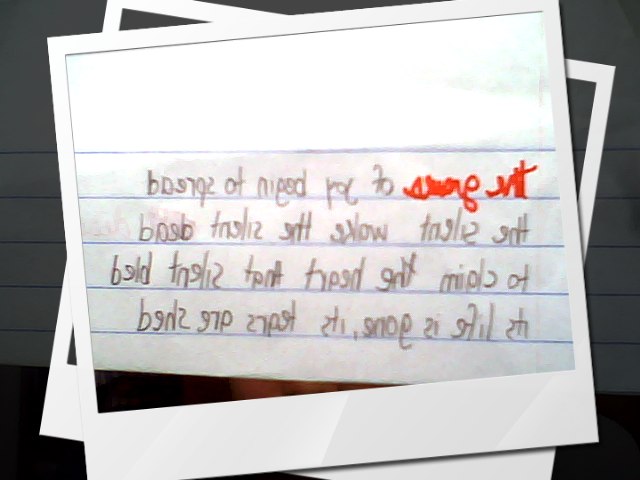 The of joy begin to spread
the silent wakes the silent dead
to claim the heart that silent bled
its life is gone, its tears are shed